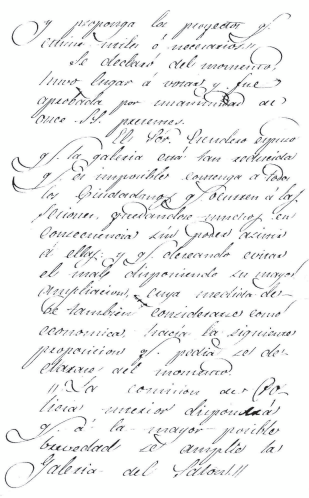 y proponga los proyectos q.e
estime utiles ó necesarios//
Se declaró del momento,
hubo lugar á votar y fue
aprobada por unanimidad de
once SS. presentes.
El Sór. Escudero espuso
q.e la galeria está tan reducida
q.e es imposible contenga a todos
los Ciudadanos q.e ocurren á las
seciones, quedandose muchos en
consecuencia sin poder asistir
á ellas: y q.e deseando evitar
el mal, disponiendo su mayor
ampliacion, cuya medida de-
be tambien considerarse como
economica, hacía la siguiente
proposicion q.e pedia se de-
clarara del momento.
"La comision de Po-
licia interior dispondrá
q.e á la mayor posible
brevedad se amplie la
Galeria del Salon"